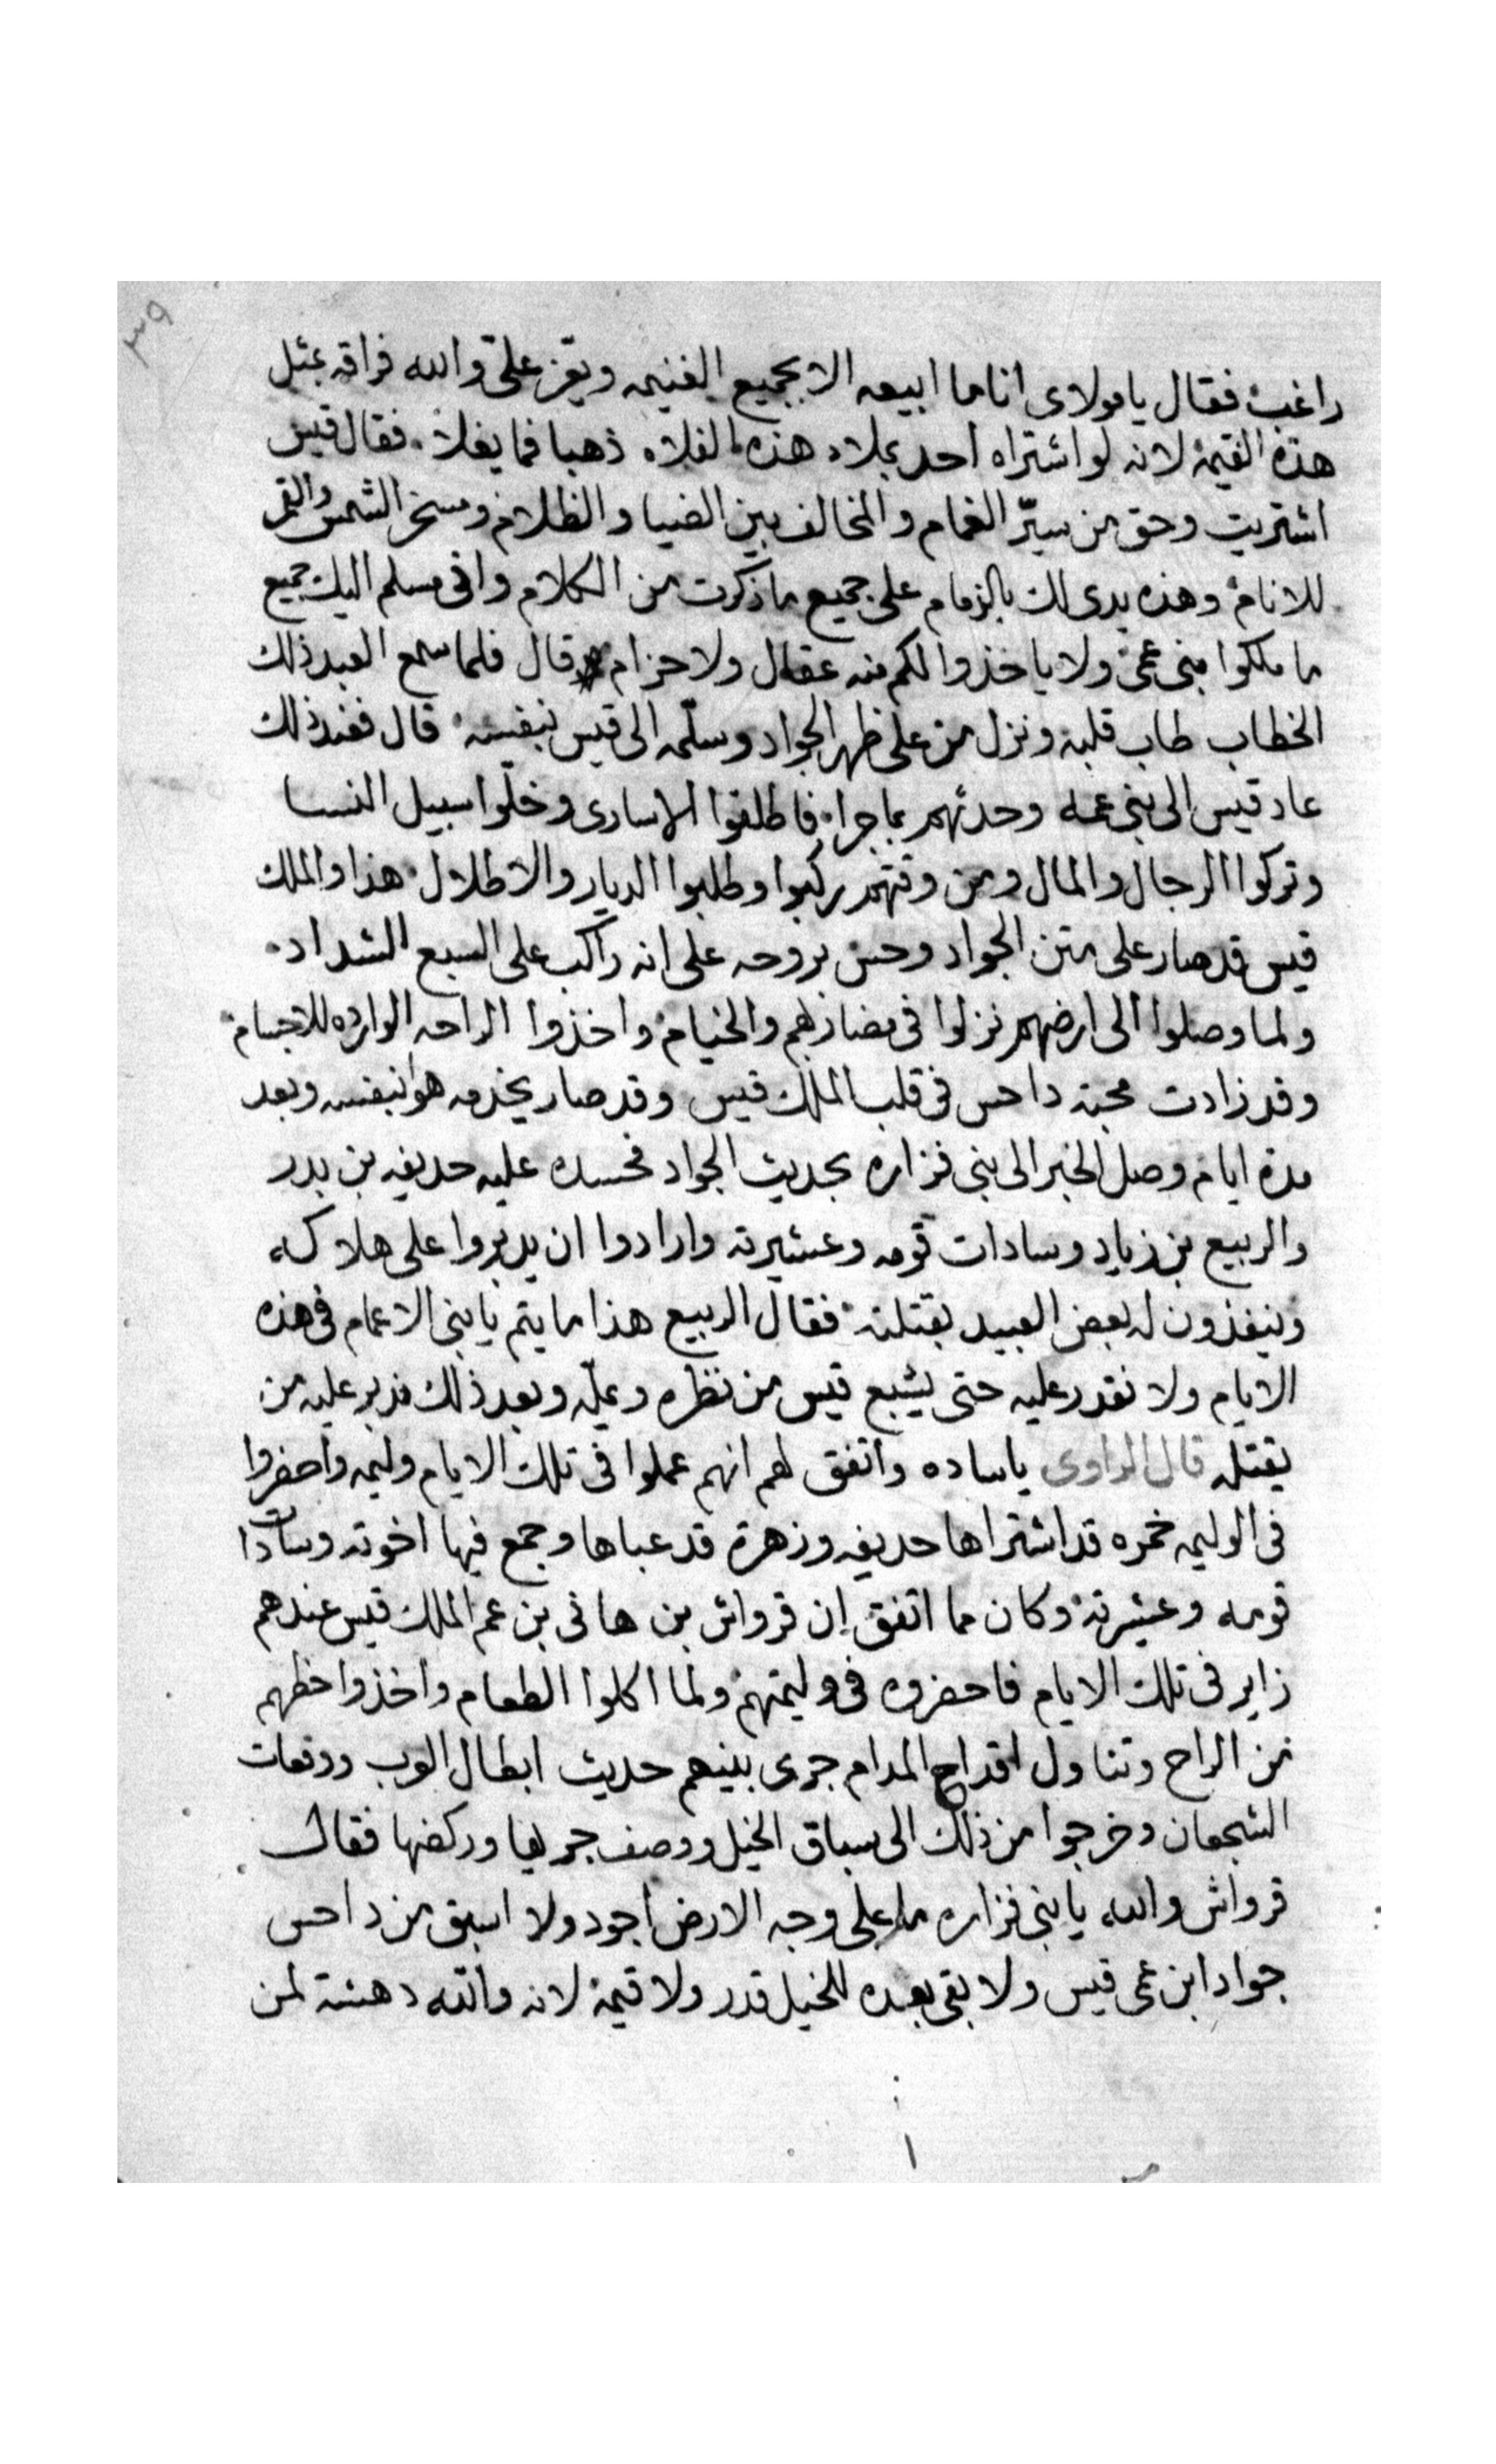 ٣٩
راغب فقال يا مولاى انا ما ابيعه الا بجميع الغنيمه ويعز علىّ والله فراقه بمثل
هذه القيمة لانه لو اشتراه احد بملاء هذه الفلاه ذهبا فما يغلا فقال قيس
اشتريت وحق من سيّر الغمام والمخالف بين الضيا والظلام وسخر الشمس والقمر
للانام وهذه يدى لك بالزمام على جميع ما ذكرت من الكلام وانى مسلم اليك جميع
ما ملكوا بنى عمى ولا ياخذوا لكم منه عقال ولا حزام قال فلما سمع العبد ذلك
الخطاب طاب قلبه ونزل من على ظهر الجواد وسلّمه الى قيس بنفسه قال فعند ذلك
عاد قيس الى بنى عمه وحدثهم بما جرا فاطلقوا الاسارى وخلّوا سبيل النسا
وتركوا الرجال والمال ومن وقتهم ركبوا وطلبوا الديار والاطلال هذا والملك
قيس قد صار على متن الجواد وحس بروحه على انه راكب على السبع الشداد
ولما وصلوا الى ارضهم نزلوا فى مضاربهم والخيام واخذوا الراحه الوارده للاجسام
وقد زادت محبة داحس فى قلب الملك قيس وقد صار يخدمه هو بنفسه وبعد
مدة ايام وصل الخبر الى بنى فزاره بحديث الجواد فحسده عليه حديفه بن بدر
والربيع بن زياد وسادات قومه وعشيرته وارادوا ان يدبروا على هلاكه
وينفذون له بعض العبيد بقتلته فقال الربيع هذا ما يتم يا بنى الاعمام فى هذه
الايام ولا نقدر عليه حتى يشبع قيس من نظره وعلّه وبعد ذلك ندبر عليه من
يقتله قال الراوى ياساده واتفق لهم انهم عملوا فى تلك الايام وليمه واحضروا
فى الوليمه خمره قد اشتراها حديفه وزهرة قد عباها وجمع فيها اخوته وسادات
قومه وعشيرته وكان مما اتفق إن قرواش بن هانى بن عم الملك قيس عندهم
زاير فى تلك الايام فاحضروه فى وليمتهم ولما اكلوا الطعام واخذوا حظهم
من الراح وتناول اقداح المدام جرى بينهم حديث ابطال العرب ووقعات
الشجعان وخرجوا من ذلك الى سباق الخيل ووصف جريها وركضها فقال
قرواش والله يا بنى فزاره ما على وجه الارض اجود ولا اسبق من داحس
جواد ابن عمى قيس ولا بقى بعده للخيل قدر ولا قيمة لانه والله دهشة لمن